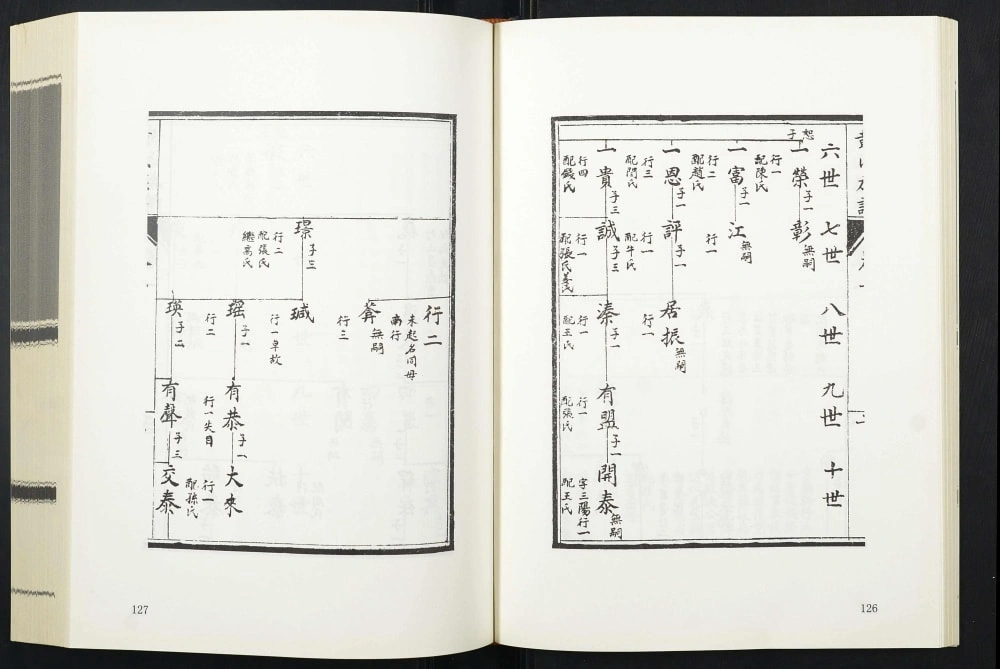 六世 七世 八世 九世 十世
恕子
一榮 子一
行一
配陳氏
彰 無嗣
一富 子一
行二
配趙氏
江 無嗣
行一
一恩 子一
行三
配閆氏
評 子一
行一
配牛氏
居振 無嗣
行一
一貴 子三
行四
配錢氏
誠 子三
行一
配張氏姜氏
溱 子一
行一
配王氏
有盟 子一
行一
配張氏
開泰 無嗣
字三陽行一
配王氏
126
行二
未起名同母
南行
無嗣
行三
璟 子三
行二
配張氏
繼高氏
瑊
行一早故
瑶 子一
行二
有恭 子一
行一失目
大來
行一
配孫氏
瑛 子二
有聲 子三
交泰
127